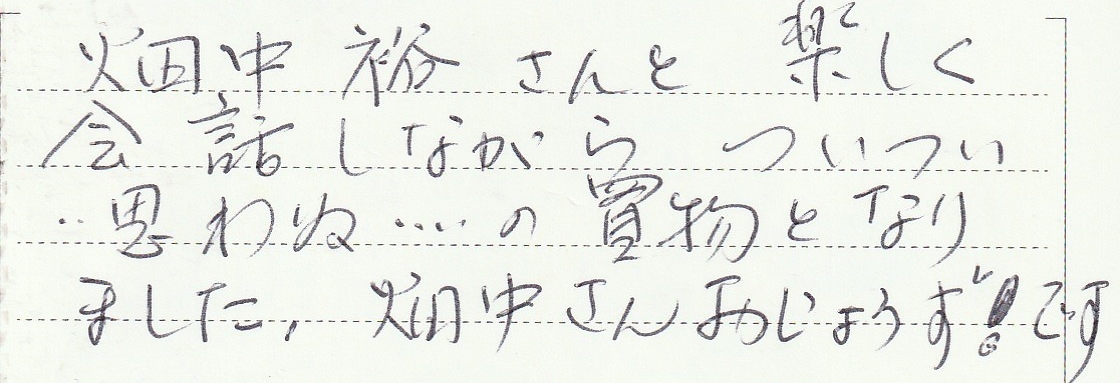 畑中 裕 さんと 楽しく
会話しながら ついつい
‥思わぬ‥‥の買物となり
ました、畑中さんおじょうず!です